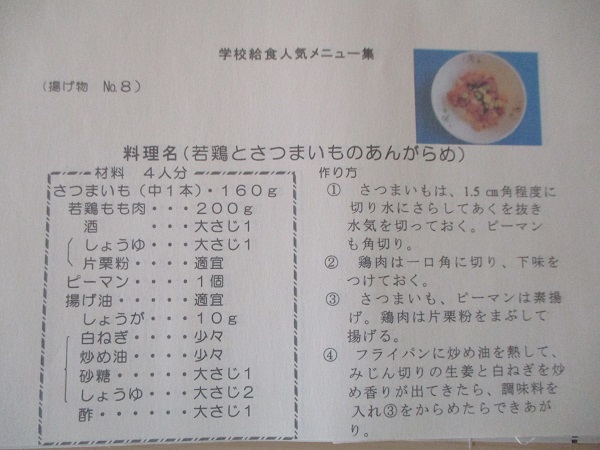 学校給食人気メニュー集
(揚げ物 No.8)
料理名(若鶏とさつまいものあんがらめ)
材料 4人分
さつまいも(中1本)・160g
若鶏もも肉・・・200g
酒 ・・・大さじ1
しょうゆ・・・大さじ1
片栗粉・・・・適宜
ピーマン・・・・1個
揚げ油・・・・・適宜
しょうが・・・・10g
白ねぎ・・・・・少々
炒め油・・・・・少々
砂糖・・・・・大さじ1
しょうゆ・・・大さじ2
酢・・・・・・大さじ1
作り方
① さつまいもは、1.5㎝角程度に
切り水にさらしてあくを抜き
水気を切っておく。ピーマン
も角切り。
② 鶏肉は一口角に切り、下味を
つけておく。
③ さつまいも、ピーマンは素揚
げ。鶏肉は片栗粉をまぶして
揚げる。
④ フライパンに炒め油を熱して、
みじん切りの生姜と白ねぎを炒
め香りが出てきたら、調味料を
入れ③をからめたらできあが
り。